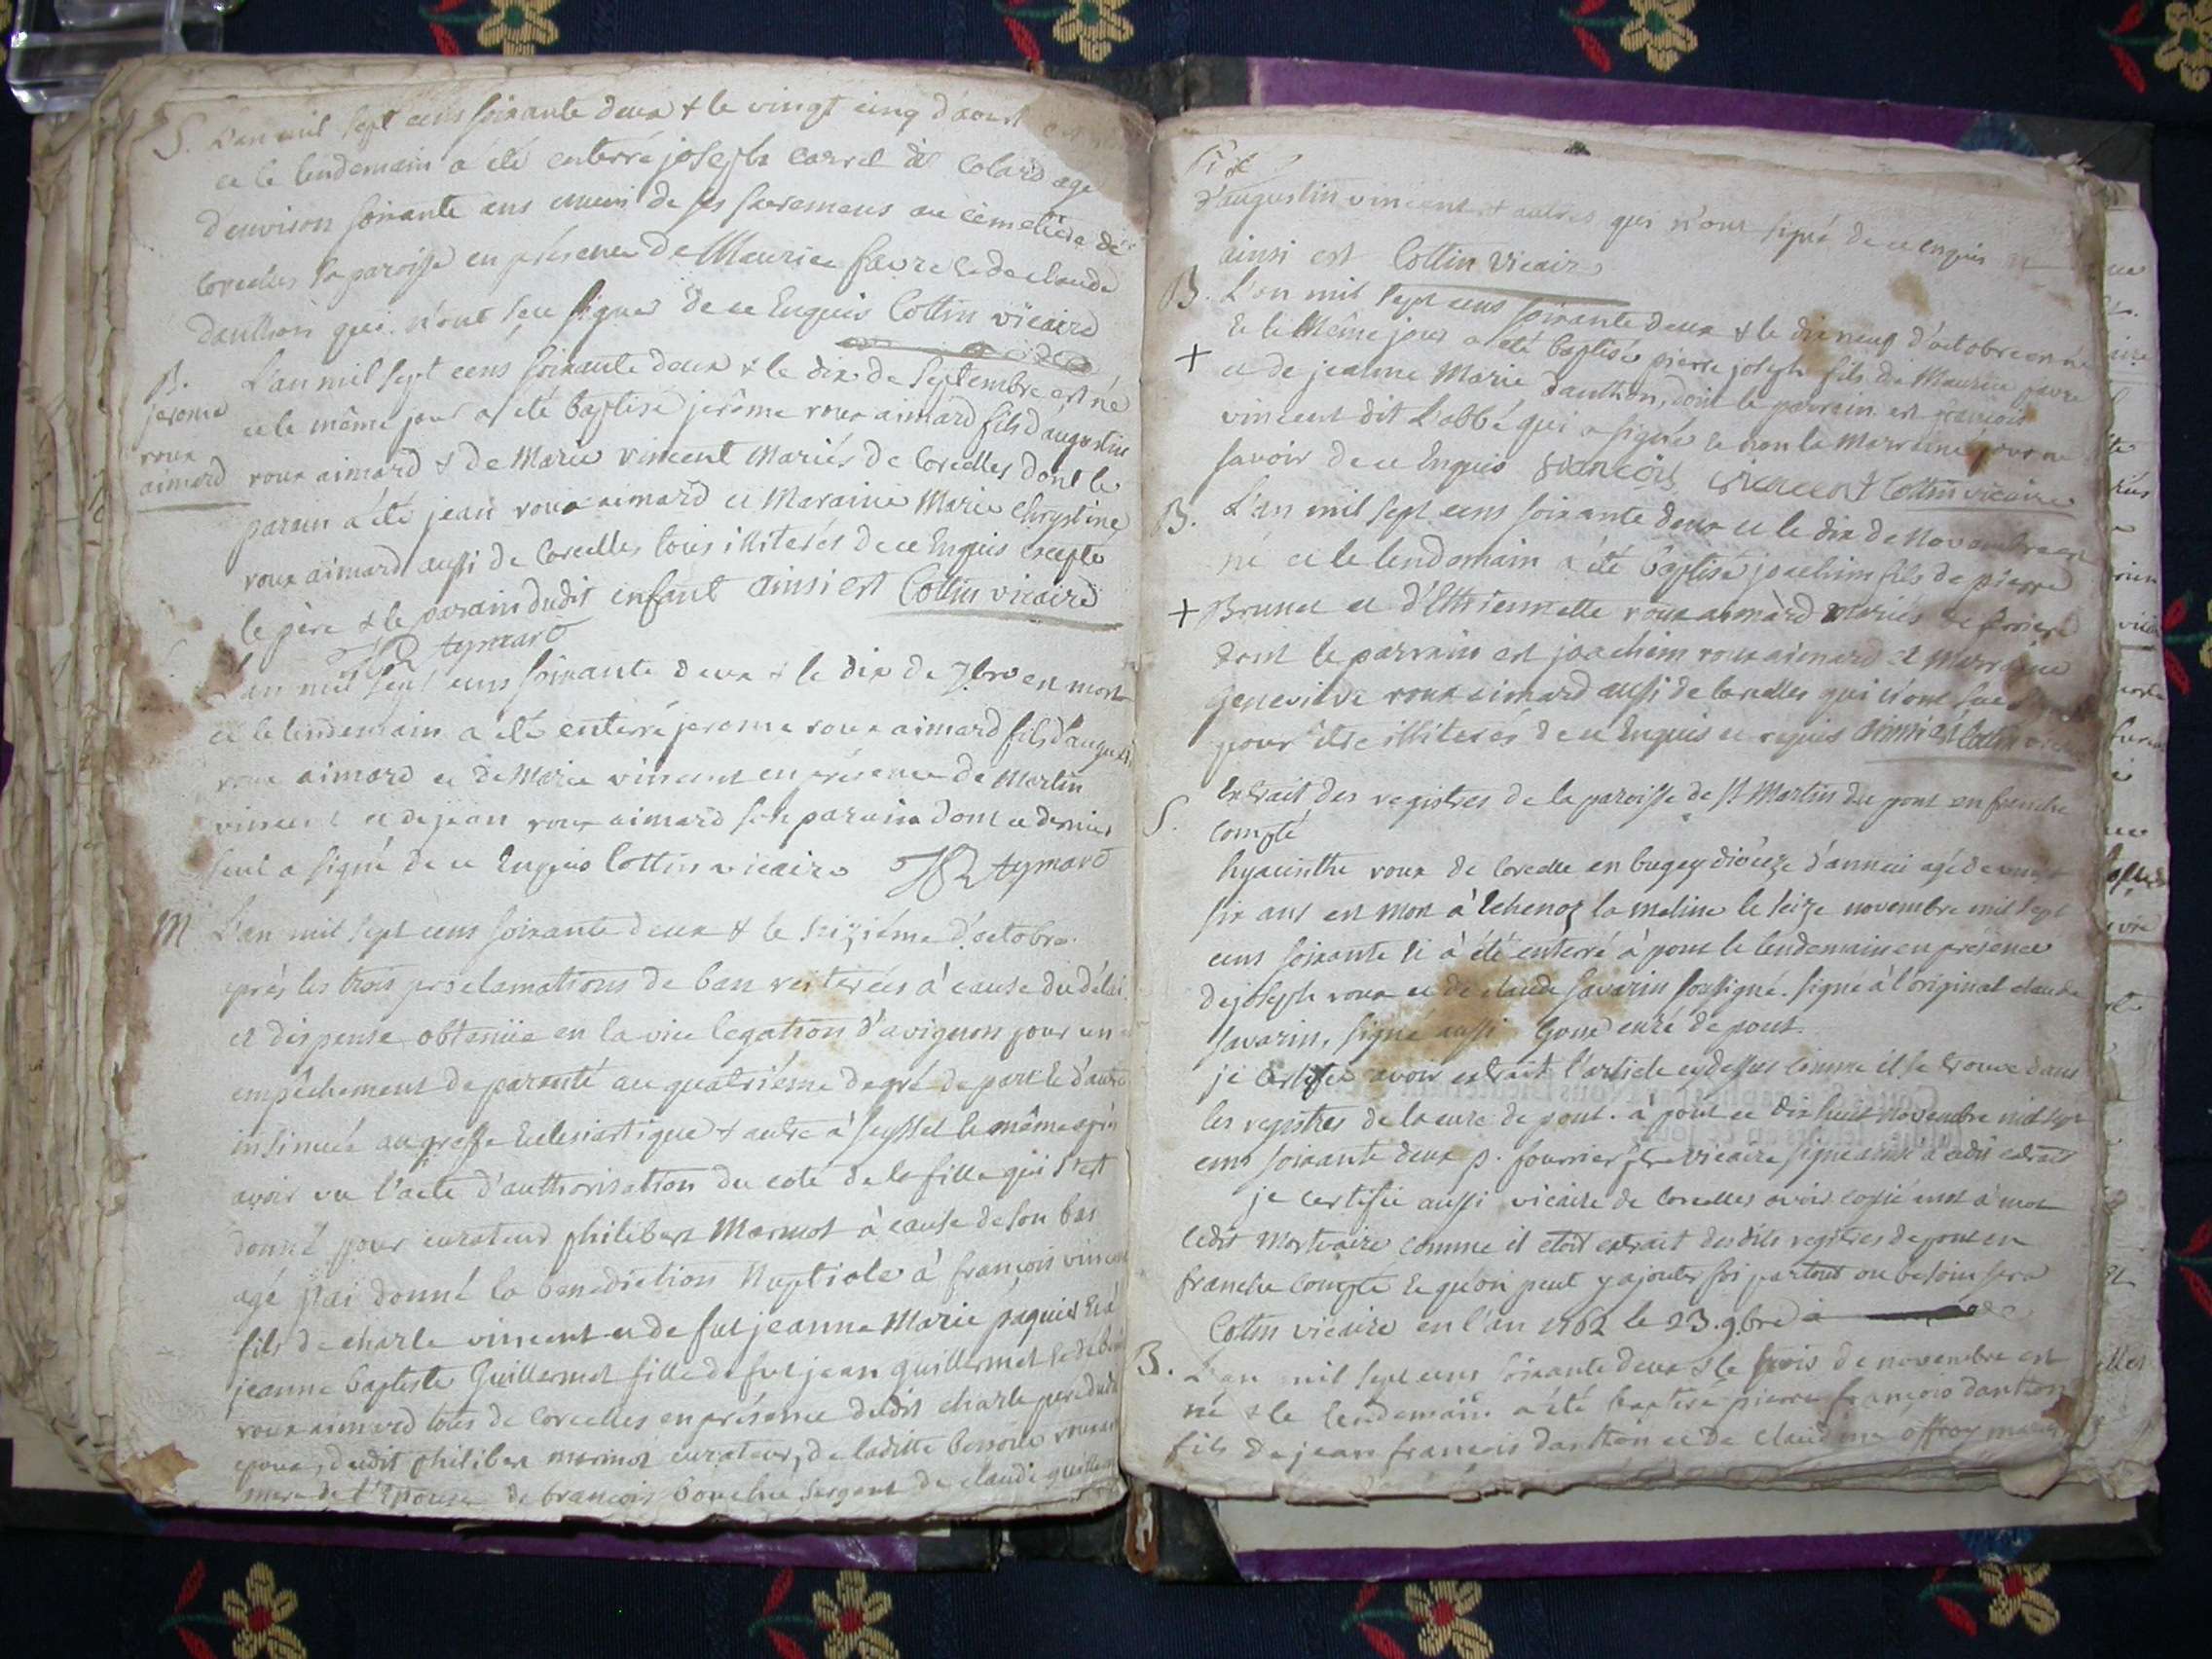 S. L'an mil sept cens soixante deux & le vingt cinq d'aoust est
et le lendemain a été enterré joseph carrel dit Colard agé
d'environ soixante ans muni de ses sacremens au cimetiere de
Corcelles sa paroisse en présence de Maurice favre & de claude
danthon qui n'ont sçu signer de ce Enquis Cottin vicaire
B. L'an mil sept cens soixante deux & le dix de Septembre est né
jerome
et le même jour a été baptisé jerôme roux aimard fils d'augustin
roux
aimard
roux aimard & de Marie vincent Mariés de Corcelles dont le
parain a été jean roux aimard et Maraine Marie Chrystine
roux aimard aussi de Corcelles tous illiterés de ce Enquis excepté
le père & le parain dudit enfant ainsi est Cottin vicaire
JR aymard
L'an mil sept cens soixante deux & le dix de 7.bre en mort
et le lendemain a été enterré jerome roux aimard fils d'augusti
roux aimard et de Marie vincent en présence de Martin
vincent et de jean roux aimard son parain dont ce dernier
seul a signé de ce Enquis Cottin vicaire JR aymard
M L'an mil sept cens soixante deux & le seizième d'octobre
après les trois proclamations de ban reiterées à cause du délai
et dispense obtenüe en la vice legation d'avignon pour un
empêchement de parenté au quatriéme degré de part & d'autre
insinuée au greffe Eclesiastique & autre à seyssel le même après
avoir vu l'acte d'authorisation du coté de la fille qui s'est
donné pour curateur philibert Marmot à cause de son bas
agé j'ai donné la benediction Nuptiale à françois vincent
fils de charle vincent et de fut jeanne Marie paquier & à
jeanne baptiste Guillermet fille de fut jean guillermet & de
roux aimard tous de Corcelles en présence dudit charle pere dudit
epoux, dudit philibert marmot curateur, de laditte roux
mere de l'Epouse de françois bouchu sergent de claude guille
d'augustin vincent & autres qui n'ont signé de ce enquis
ainsi est Cottin Vicaire
B. L'an mil sept cens soixante deux & le dix neuf d'octobre est né
& le Même jour a été baptisé pierre joseph fils de Maurice favre
+ et de jeanne Marie danthon, dont le parrain est françois
vincent dit L'abbé qui a signé & non la Marraine pour ne
savoir de ce Enquis francois vincent Cottin vicaire
B. L'an mil sept cens soixante deux et le dix de Novembre est
né et le lendemain a été baptisé joachim fils de pierre
+ Brunet et d'Ethiennette roux aimard Mariés
dont le parrain est joachim roux aimard et Marraine
genevieve roux aimard aussi de Corcelles qui n'ont sçu
pour être illiterés de ce Enquis et requis ainsi est Cottin
S. Extrait des registres de la paroisse de st Martin du pont en franche
compté
hyacinthe roux de Corcelle en bugey diocèze d'anneci agé de vingt
six ans est mort à Echenoz la meline le seize novembre mil sept
cens soixante & à été enterré à pont le lendemain en présence
de joseph roux et de claude Savarin soussigné. signé à l'original claude
Savarin, signé aussi curé de pont.
je certifie avoir extrait l'article cy dessus comme il se trouve dans
les registres de la cure de pont. à pont ce dix huit novembre mil sept
cens soixante deux p. fourrier ptre vicaire signé audit extrait
je certifie aussi vicaire de Corcelles avoir copié mot à mot
ledit Mortuaire comme il etoit extrait desdits registres de pont en
franche Compté & qu'on peut y ajouter foi partout ou besoin sera
Cottin vicaire en l'an 1762 le 23. 9.bre
B. L'an mil sept cens soixante deux & le trois de novembre est
né & le lendemain a été baptisé pierre françois danthon
fils de jean francois danthon et de claudine offroy